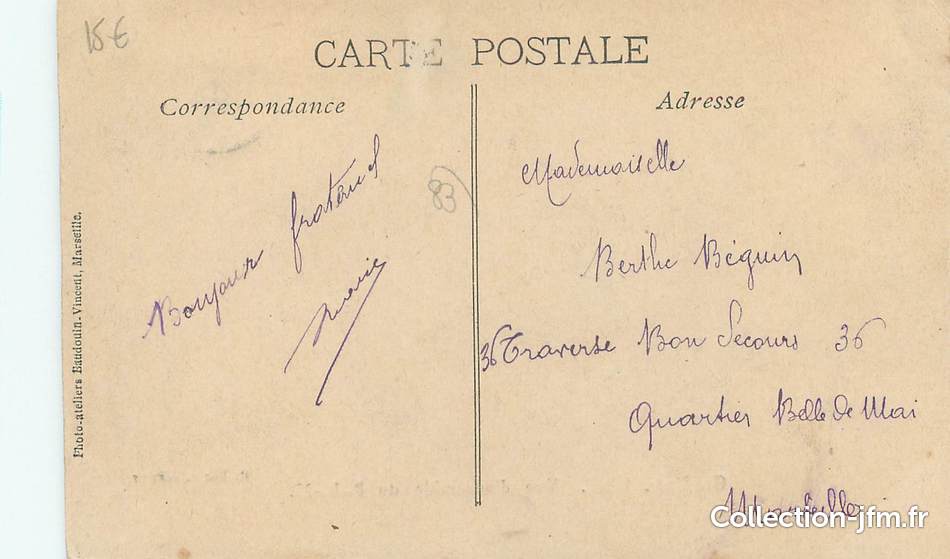 15€
CARTE POSTALE
Correspondance
Adresse
Bonjour fraternel
Marie
83
Mademoiselle
Berthe Béguin
36 Traverse Bon Secours 36
Quartier Belle de Mai
Marseille
Photo-ateliers Baudouin-Vincent, Marseille.
Collection-jfm.fr